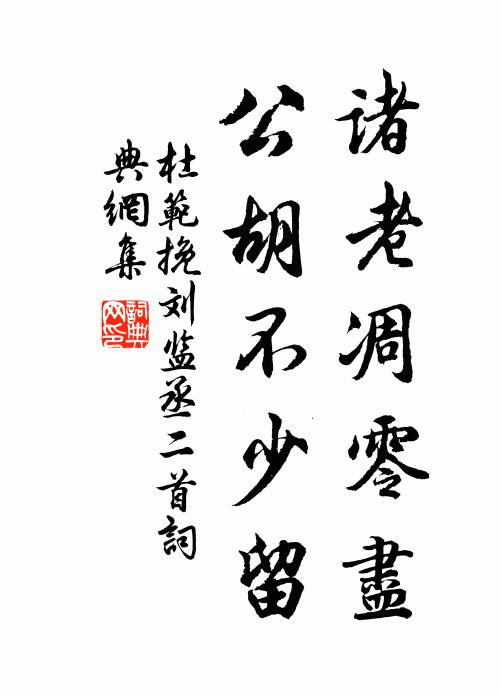 诸老凋零盡
公胡不少留
杜範挽刘监丞二首詞
典網集
詞典網印